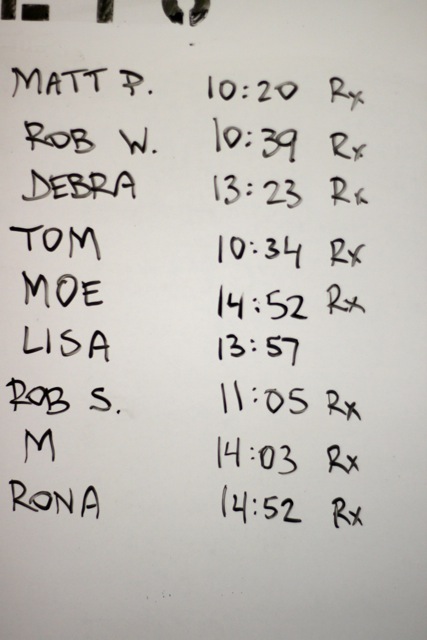 MATT P. 10:20 Rx
ROB W. 10:39 Rx
DEBRA 13:23 Rx
TOM 10:34 Rx
MOE 14:52 Rx
LISA 13:57
ROB S. 11:05 Rx
M 14:03 Rx
RONA 14:52 Rx